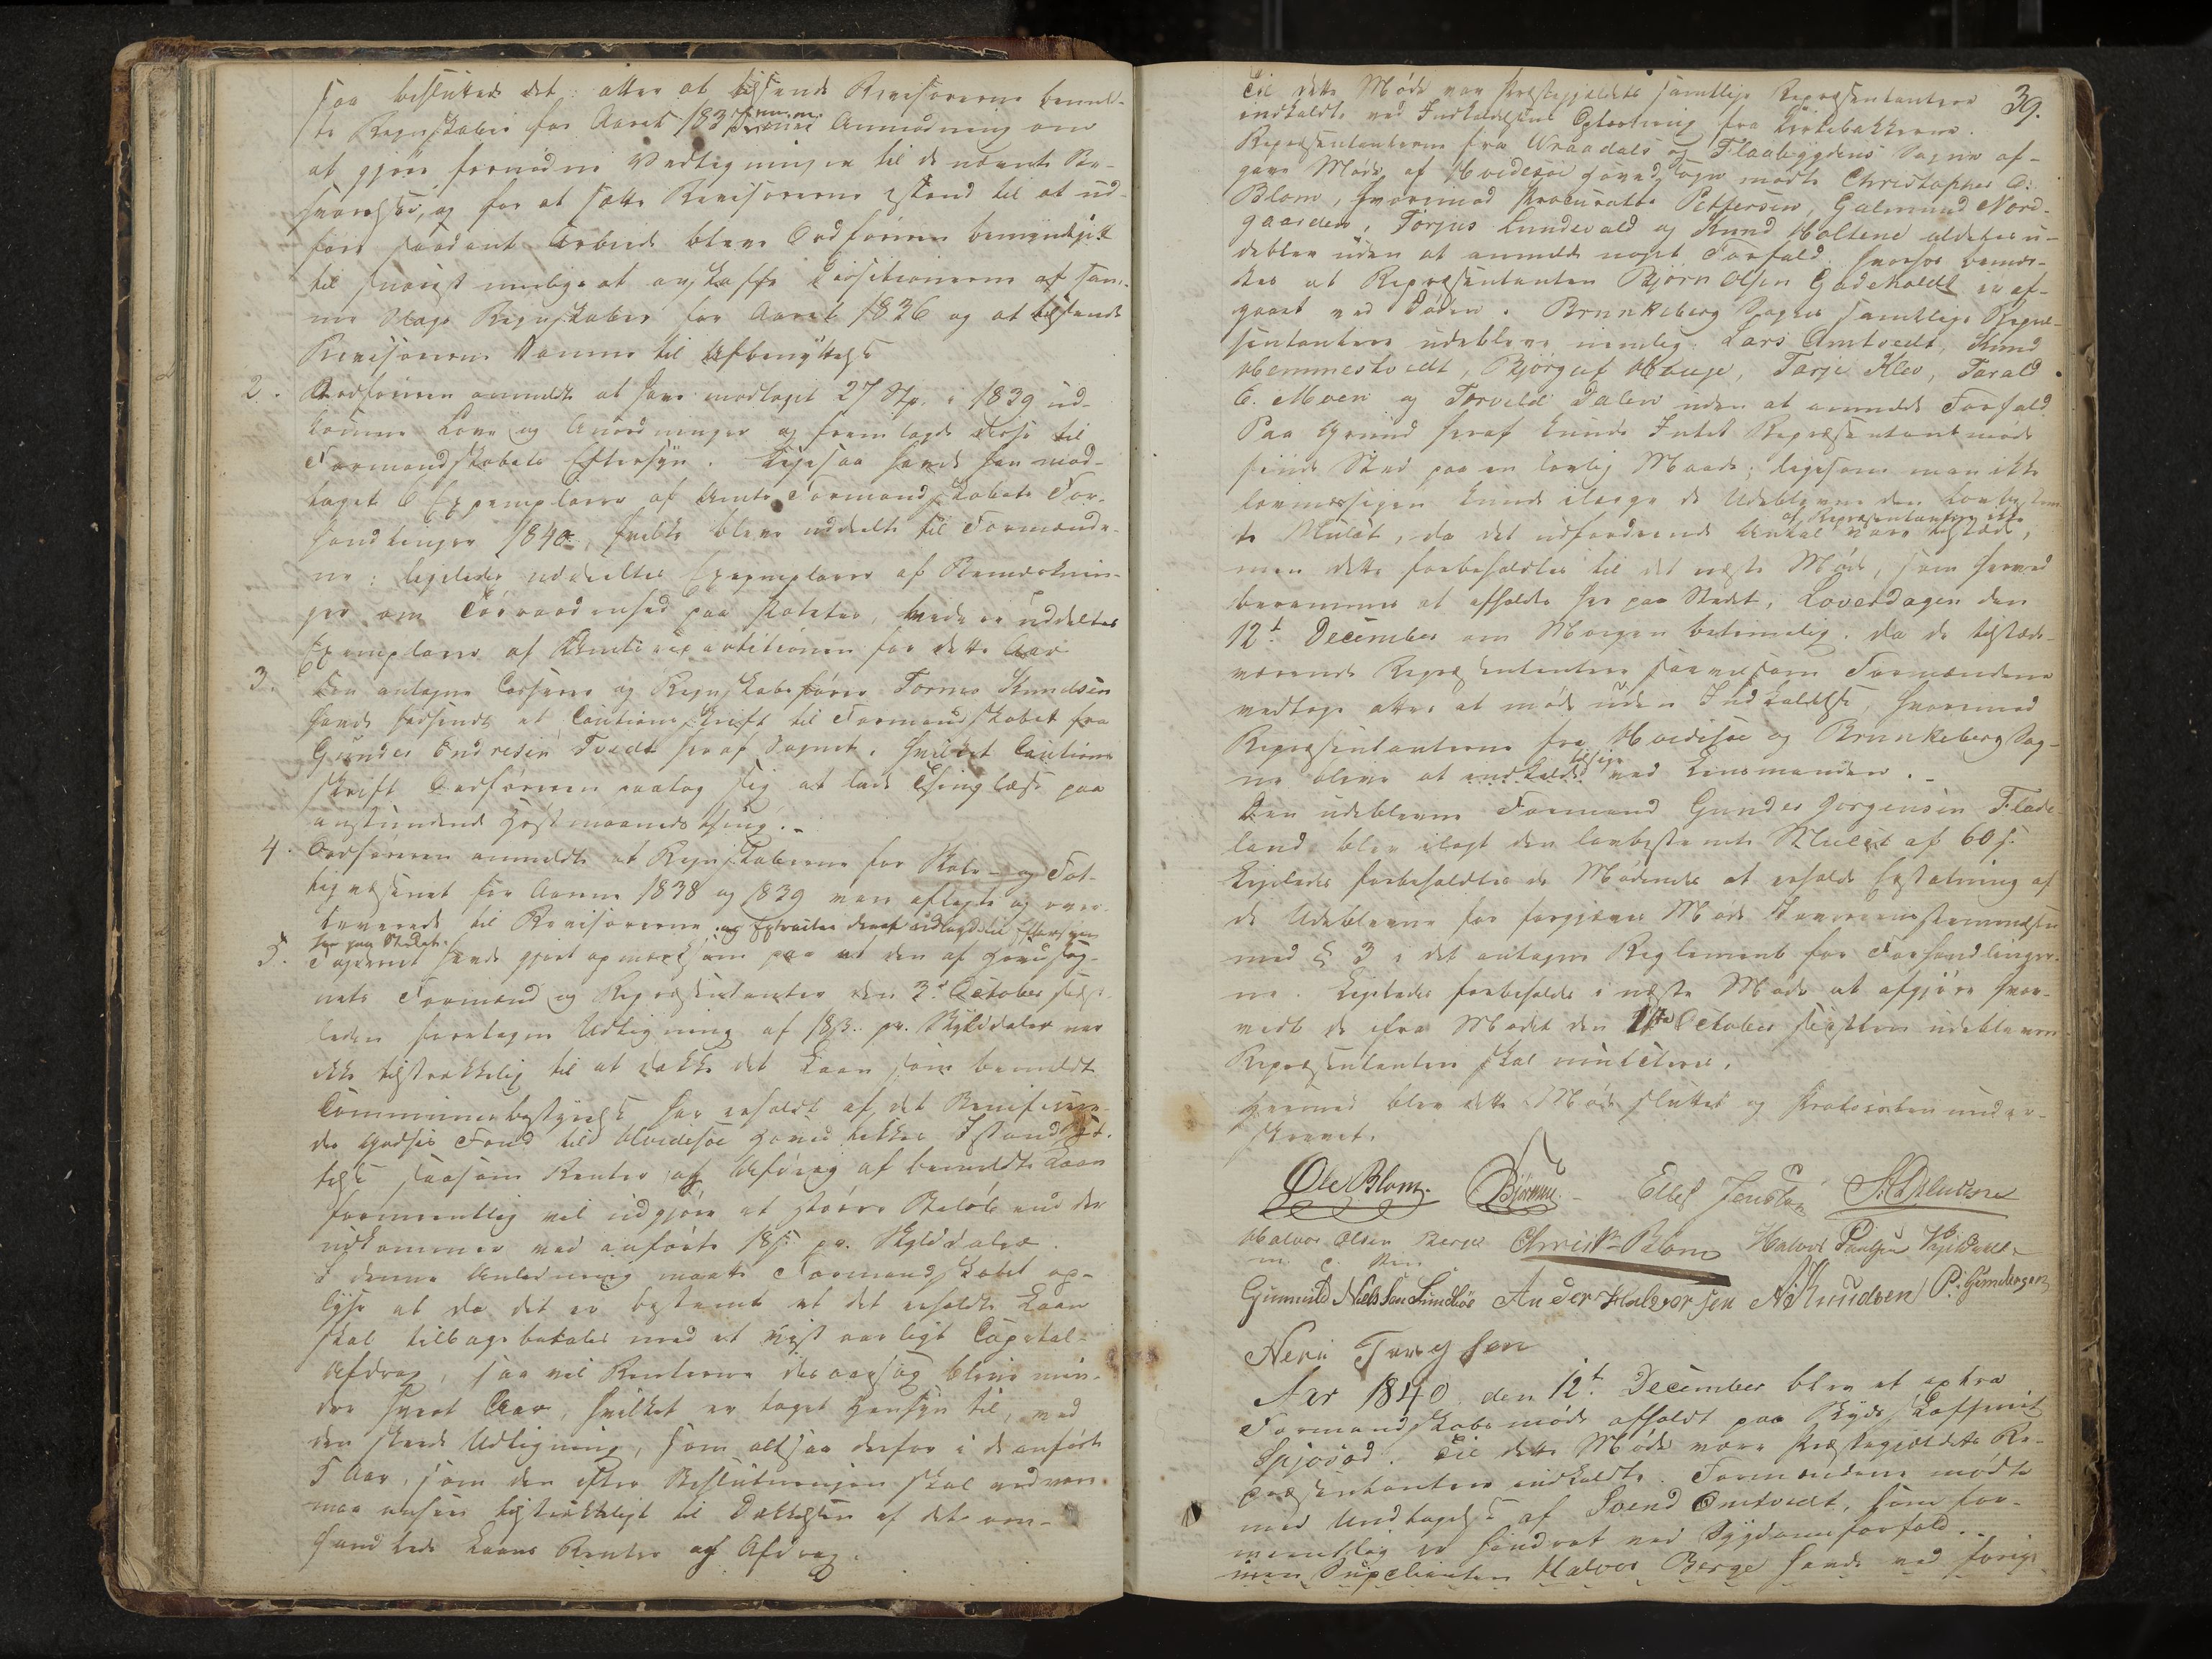 saa besluttedes det: atter at tilsende Revisorerne bemeld-
te Regnskaber for Aaret 183 Anmodning om
at gjøre fornødne Vedtegninger til de nævnte Be-
svarelser, og for at sætte Revisorerne istand til at ud-
føre saadant Arbeide blev Ordføreren bemyndiget
til snarest muligt at anskaffe af sam-
me Slags Regnskaber for Aaret 1836 og at tilsende
Revisorerne samme til Afbenyttelse
2. Ordføreren anmeldte at have modtaget 27 Stkr. i 1839 ud-
komne Love og Anordninger og fremlagde disse til
Formandskabets Eftersyn. Ligesaa havde han mod-
taget 6 Exemplarer af Amts Formandskabets For-
handlinger 1840, hvilke bleve uddeelte til Formænde-
ne; ligeledes uddeeltes Exemplarer af Bemærknin-
ger om Tørraadenhed paa Poteter, videre uddeltes
Exemplarer af Amtsrepartitionen for dette Aar
3. Den antagne Casserer og Regnskabsfører Tormo Knudsen
havde indsendt et Cautionsskrift til Formandskabet fra
Gunder Endresen Tvedt her af Sognet. Hvilket Cautions
skrift Ordføreren paatog sig at lade Thinglæse paa
anstundende Høstmaaneds Thing.-
4. Ordføreren anmeldte at Regnskaberne for Skole- og Fat-
tigvæsenet for Aarene 1838 og 1839 vare aflagte og over-
leverede til Revisorerne og Extracter deraf udlagde til Eftersyn
her paa Stedet.
5. Fogderiet havde gjort opmærksom paa at den af Hovedsog-
nets Formænd og Repræsentanter den 3d October sidst-
leden foretagne Udligning af 18 s. pr. Skylddaler var
ikke tilstrækkelig til at dække det Laan som bemeldte
Communebestyrelse har erholdt af det Beneficere-
de Godses Fond til Hvidesøe Hovedkirkes Istandsæt-
telse saasom Renter og Afdrag af bemeldte Laan
formeentlig vil udgjøre et større Beløb end der
udkommer ved anførte 18 s. pr. Skylddaler.
I denne Anledning maatte Formandskabet op-
lyse at da det er bestemt at det erholdte Laan
skal tilbagebetales med et vist aarligt Capital-
Afdrag, saa vil Renterne desaarsag blive min-
dre hvert Aar, hvilket er taget Hensyn til, ved
den skeede Udligning, som altsaa derfor i de anførte
5 Aar, som den efter Beslutningen skal vedvare
maa ansees tilstrækkeligt til Dækkelsen af det om-
handlede Laans Renter og Afdrag.
39.
Til dette Møde var Præstegjeldets samtlige Repræsentantere
indkaldte ved Indkaldelsens Oplæsning fra Kirkebakkerne.
Repræsentanterne fra Wraadals og Flaabygdens Sogne af-
gave Møde, af Hvidesøe Hovedsogn mødte Christopher O:
Blom, hvorimod Procurator Pettersen, Galmund Nord-
gaarden, Torjus Lundevald og Knud Holtene aldeles u-
deblev uden at anmelde noget Forfald. Herhos bemær-
kes at Repræsentanten Bjørn Olsen Gadeholdt er af-
gaaet ved Døden. Brunkeberg Sogns samtlige Repræ-
sentanter udebleve nemlig: Lars Amtvedt, Knud
Hemmestvedt, Bjørguf Hauge, Tarje Klev, Tarald
E. Moen og Torvild Dalen uden at anmelde Forfald
Paa Grund heraf kunde Intet Repræsentantmøde
finde Sted paa en lovlig Maade; ligesom man ikke
lovmæssigen kunde ilægge de Udeblevne den lovbestem-
af Repræsentanter ikke
te Mulct, da det udfordrende Antal vare tilstæde,
men dette forbeholdtes til det næste Møde, som herved
berammes at afholde her paa Stedet, Løverdagen den
12t December om Morgen betimelig. Da de tilstæde-
værende Repræsentantere saavelsom Formændene
vedtoge atter at møde uden Indkaldelse, hvorimod
Repræsentanterne fra Hvidesøe og Brunkeberg Sog-
tilsige
ne blive at indkalde ved Lensmanden.-
Den udeblevne Formand Gunder Jørgensen Flade
land blev ilagt den lovbestemte Mulct af 60 s.
Ligeledes forbeholdtes de Mødende at erholde Erstatning af
de Udeblevne for forgjæves Møde overeensstemmelse
med § 3 i det antagne Reglement for Forhandlinger-
ne. Ligeledes forbeholdes i næste Møde at afgjøre hvor-
vidt de fra Mødet den October sidstleden udeblevne
Repræsentanter skal mulcteres.
Hermed blev dette Møde sluttet og Protocollen under-
skrevet.
Ole Blom. Bjørnsen. Ellef Jensson
Halvor Olsen Berge Christ. Blom Halvor Paulsen
m. p. Pen
Gunnuld Nielssen Sundbøe Ander Halvorsen A Knudsen P. Gundersen
Neri Targ sen
Aar 1840 den 12t. December blev et extra
Formandskabsmøde afholdt paa Skydsskaffer
Spjosod. Til dette Møde vare Præstegjældets Re-
præsentantere indkaldte. Formændene mødte
med Undtagelse af Svend Omtvedt, som for-
meentlig er hindret ved Sygdomsforfald.
men Supelianten Halvor Berge havde ved forrige